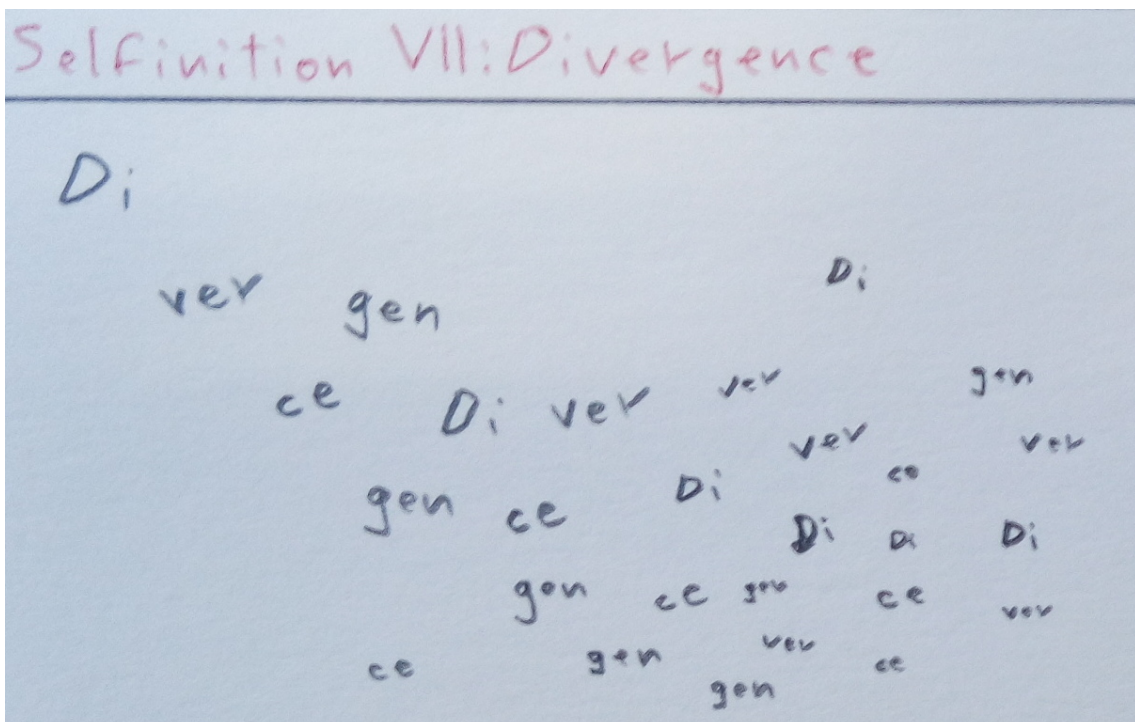 Selfinition VII: Divergence
Di
Di
ver gen
ce Di ver ver gen
ver ver
gen ce Di ce
Di Di Di
gen ce gen ce ver
ce gen ver ce
gen